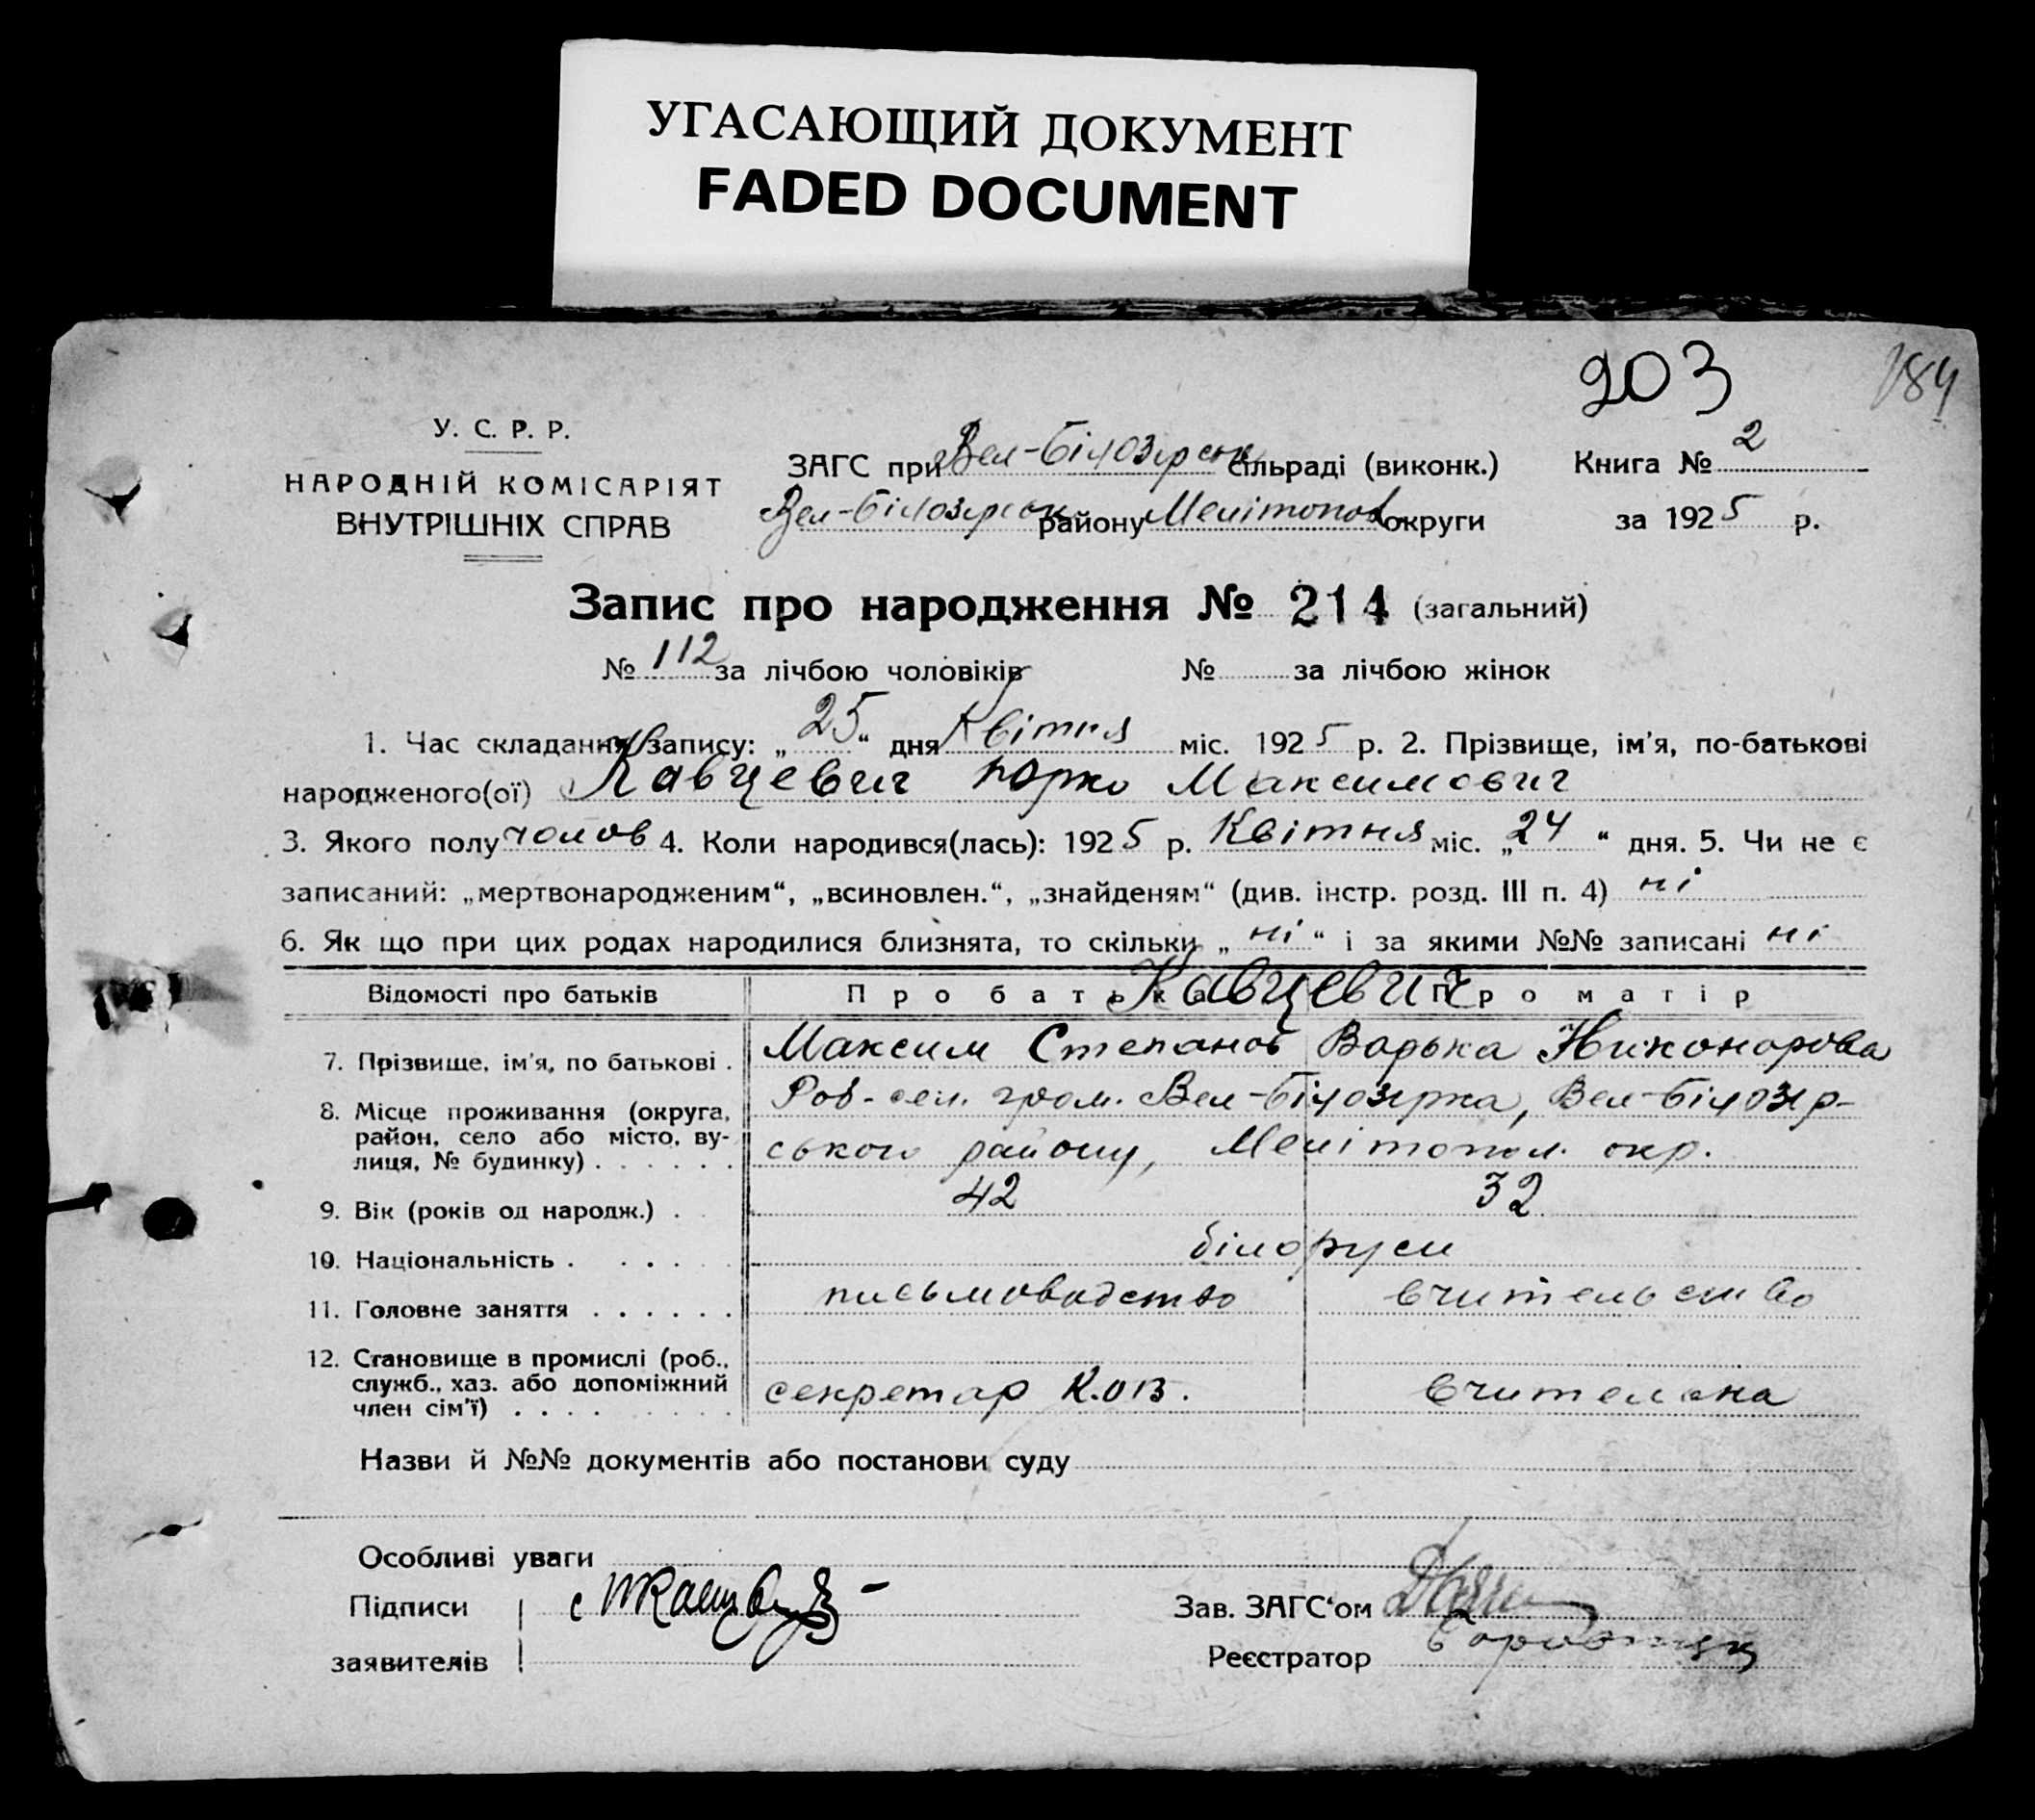 УГАСАЮЩИЙ ДОКУМЕНТ
FADED DOCUMENT
203
184
У. С. Р. Р.
НАРОДНІЙ КОМІСАРІЯТ
ВНУТРІШНІХ СПРАВ
ЗАГС при Вел-Білозірськ сільраді (виконк.) Книга № 2
Вел-Білозірськ району Мелітопов округи за 1925 р.
Запис про народження № 214 (загальний)
№ 112 за лічбою чоловіків № за лічбою жінок
1. Час складання запису: „25“ дня Квітня міс. 1925 р. 2. Прізвище, ім’я, по-батькові
народженого(ої) Кавцевич Юрко Максимович
3. Якого полу чолов 4. Коли народився(лась): 1925 р. Квітня міс. „24“ дня. 5. Чи не є
записаний: „мертвонародженим“, „всиновлен.“, „знайденям“ (див. інстр. розд. III п. 4) ні
6. Як що при цих родах народилися близнята, то скільки „ні“ і за якими №№ записані ні
Відомості про батьків Про батька Про матір
Кавцевич
7. Прізвище, ім’я, по батькові . Максим Степанов Варька Никонорова
8. Місце проживання (округа, Роб-сел. гром. Вел-Білозірка, Вел-Білозір-
район, село або місто, ву-
лиця, № будинку) . . . . . . ського району, Мелітопол. окр.
9. Вік (років од народж.) . 42 32
10. Національність . . . . . білоруси
11. Головне заняття . . . . . . письмоводство вчительство
12. Становище в промислі (роб.,
служб., хаз. або допоміжний секретар К.О.В. вчителька
член сім’ї) . . . .
Назви й №№ документів або постанови суду
Особливі уваги
Підписи
заявителів
Зав. ЗАГС‘ом
Реєстратор